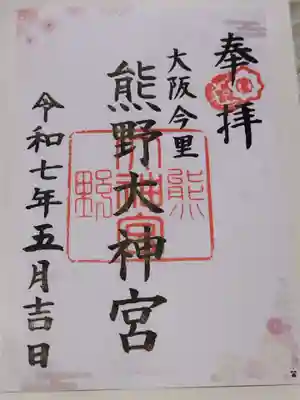 奉拝
大阪今里
熊野大神宮
令和七年五月吉日
熊野
神宮